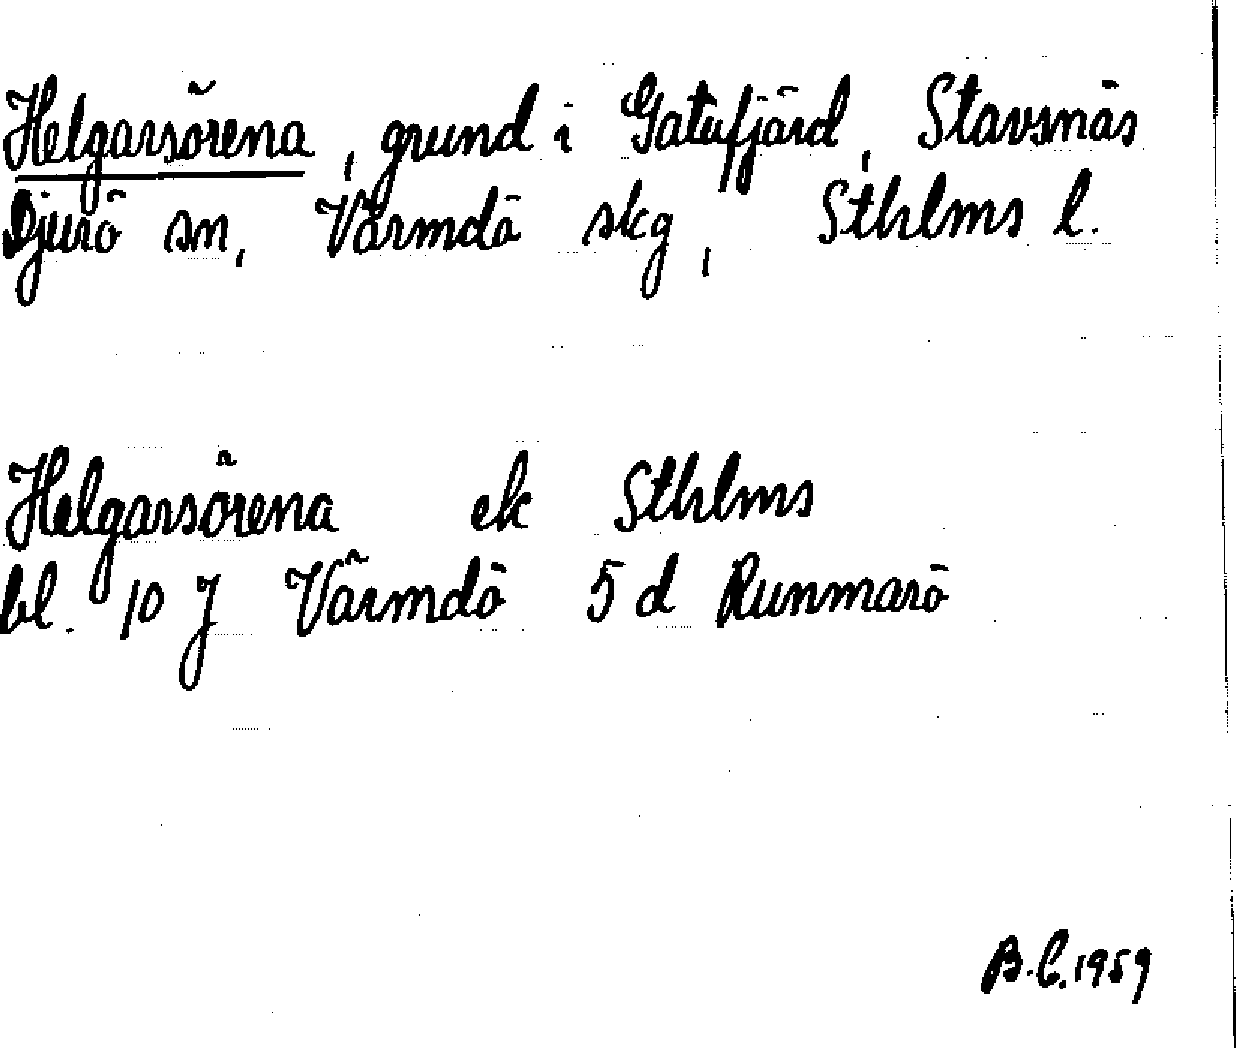 Helgarsörena, grund i Gatufjärd, Stavsnäs
Djurö sn, Värmdö skg, Sthlms l.
Helgarsörena ek Sthlms
bl. 10 J Värmdö 5 d Runmarö
B.C. 1959